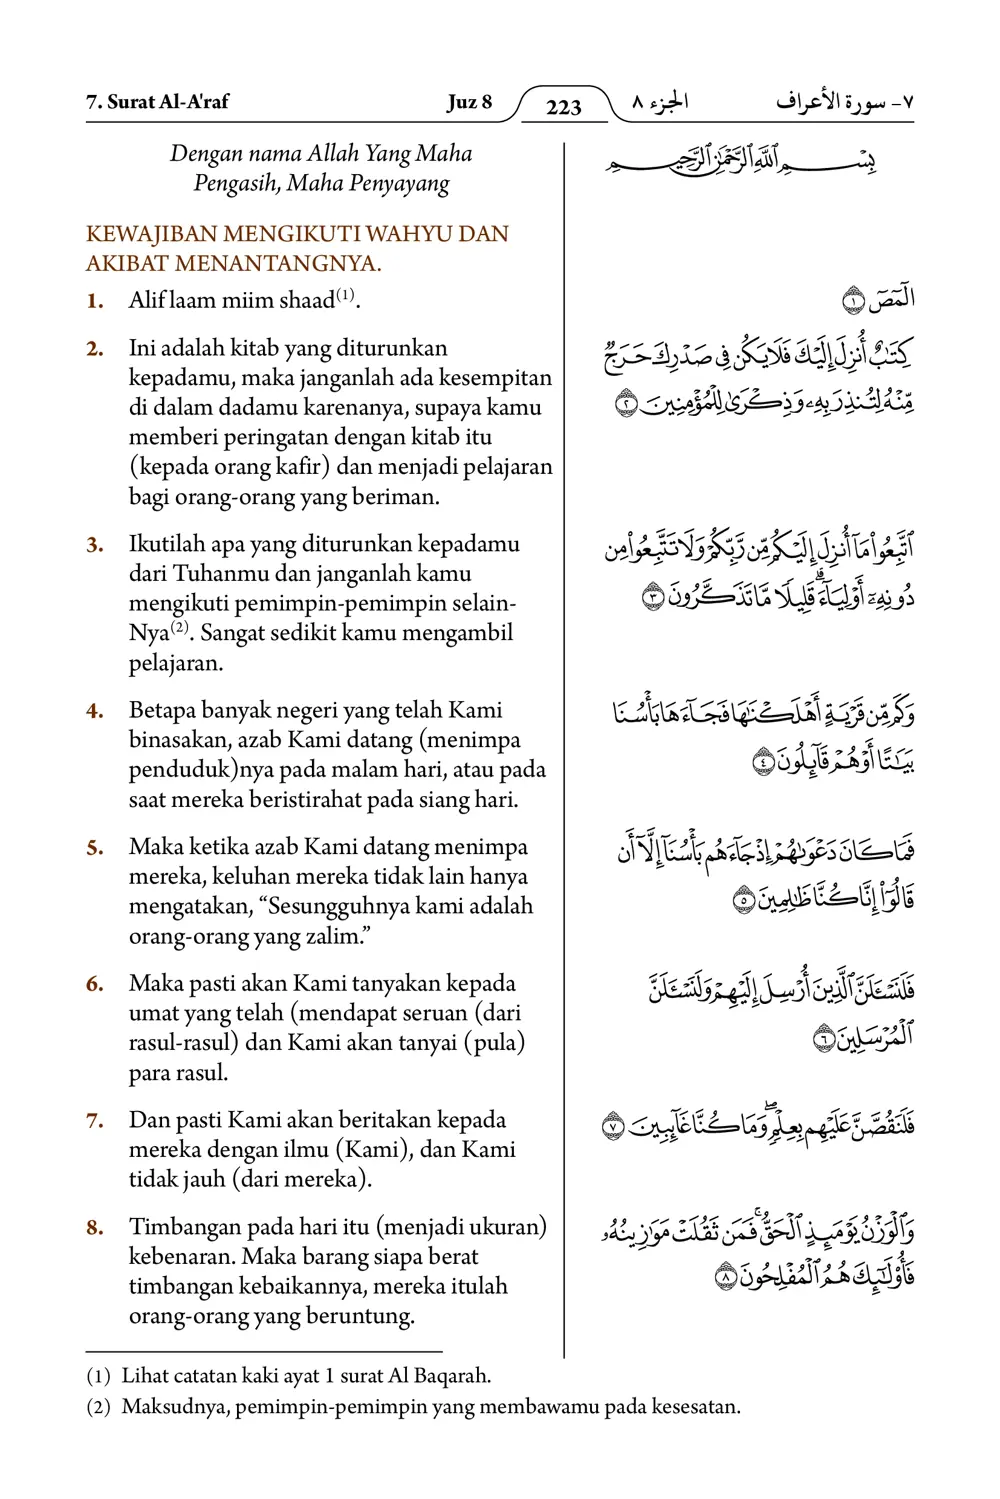 7. Surat Al-A'raf Juz 8 223 الجزء ٨ ٧- سورة الأعراف
Dengan nama Allah Yang Maha
Pengasih, Maha Penyayang
KEWAJIBAN MENGIKUTI WAHYU DAN
AKIBAT MENANTANGNYA.
1. Alif laam miim shaad(1).
2. Ini adalah kitab yang diturunkan
kepadamu, maka janganlah ada kesempitan
di dalam dadamu karenanya, supaya kamu
memberi peringatan dengan kitab itu
(kepada orang kafir) dan menjadi pelajaran
bagi orang-orang yang beriman.
3. Ikutilah apa yang diturunkan kepadamu
dari Tuhanmu dan janganlah kamu
mengikuti pemimpin-pemimpin selain-
Nya(2). Sangat sedikit kamu mengambil
pelajaran.
4. Betapa banyak negeri yang telah Kami
binasakan, azab Kami datang (menimpa
penduduk)nya pada malam hari, atau pada
saat mereka beristirahat pada siang hari.
5. Maka ketika azab Kami datang menimpa
mereka, keluhan mereka tidak lain hanya
mengatakan, “Sesungguhnya kami adalah
orang-orang yang zalim.”
6. Maka pasti akan Kami tanyakan kepada
umat yang telah (mendapat seruan (dari
rasul-rasul) dan Kami akan tanyai (pula)
para rasul.
7. Dan pasti Kami akan beritakan kepada
mereka dengan ilmu (Kami), dan Kami
tidak jauh (dari mereka).
8. Timbangan pada hari itu (menjadi ukuran)
kebenaran. Maka barang siapa berat
timbangan kebaikannya, mereka itulah
orang-orang yang beruntung.
بِسْمِ ٱللَّهِ ٱلرَّحْمَٰنِ ٱلرَّحِيمِ
الٓمٓصٓ ١
كِتَٰبٌ أُنزِلَ إِلَيْكَ فَلَا يَكُن فِى صَدْرِكَ حَرَجٌ
مِّنْهُ لِتُنذِرَ بِهِۦ وَذِكْرَىٰ لِلْمُؤْمِنِينَ ٢
ٱتَّبِعُوا۟ مَآ أُنزِلَ إِلَيْكُم مِّن رَّبِّكُمْ وَلَا تَتَّبِعُوا۟ مِن
دُونِهِۦٓ أَوْلِيَآءَ ۗ قَلِيلًا مَّا تَذَكَّرُونَ ٣
وَكَم مِّن قَرْيَةٍ أَهْلَكْنَٰهَا فَجَآءَهَا بَأْسُنَا
بَيَٰتًا أَوْ هُمْ قَآئِلُونَ ٤
فَمَا كَانَ دَعْوَىٰهُمْ إِذْ جَآءَهُم بَأْسُنَآ إِلَّآ أَن
قَالُوٓا۟ إِنَّا كُنَّا ظَٰلِمِينَ ٥
فَلَنَسْـَٔلَنَّ ٱلَّذِينَ أُرْسِلَ إِلَيْهِمْ وَلَنَسْـَٔلَنَّ
ٱلْمُرْسَلِينَ ٦
فَلَنَقُصَّنَّ عَلَيْهِم بِعِلْمٍ ۖ وَمَا كُنَّا غَآئِبِينَ ٧
وَٱلْوَزْنُ يَوْمَئِذٍ ٱلْحَقُّ ۚ فَمَن ثَقُلَتْ مَوَٰزِينُهُۥ
فَأُو۟لَٰٓئِكَ هُمُ ٱلْمُفْلِحُونَ ٨
(1) Lihat catatan kaki ayat 1 surat Al Baqarah.
(2) Maksudnya, pemimpin-pemimpin yang membawamu pada kesesatan.